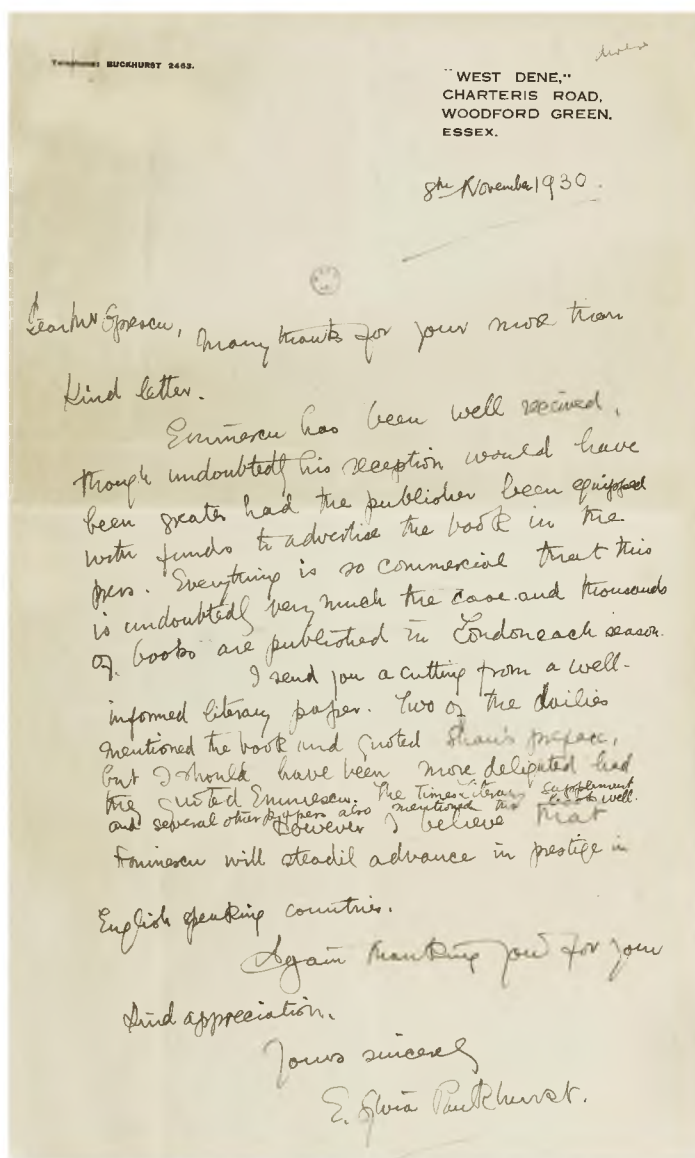 Telephone: BUCKHURST 2463.
"WEST DENE,"
CHARTERIS ROAD,
WOODFORD GREEN,
ESSEX.
8th November 1930.
Dear Mr
Many thanks for your more than
kind letter.
Eminescu has been well received,
though undoubtedly his reception would have
been greater had the publisher been equipped
with funds to advertise the book in the
press. Everything is so commercial that this
is undoubtedly very much the case and thousands
of books are published in London each season.
I send you a cutting from a well-
informed literary paper. Two of the dailies
mentioned the book and quoted Shaw's preface,
but I should have been more delighted had
they quoted Eminescu. The Times Literary Supplement
and several other papers also mentioned the book well.
However I believe that
Eminescu will steadily advance in prestige in
English speaking countries.
Again thanking you for your
kind appreciation.
Yours sincerely
E. Sylvia Pankhurst.